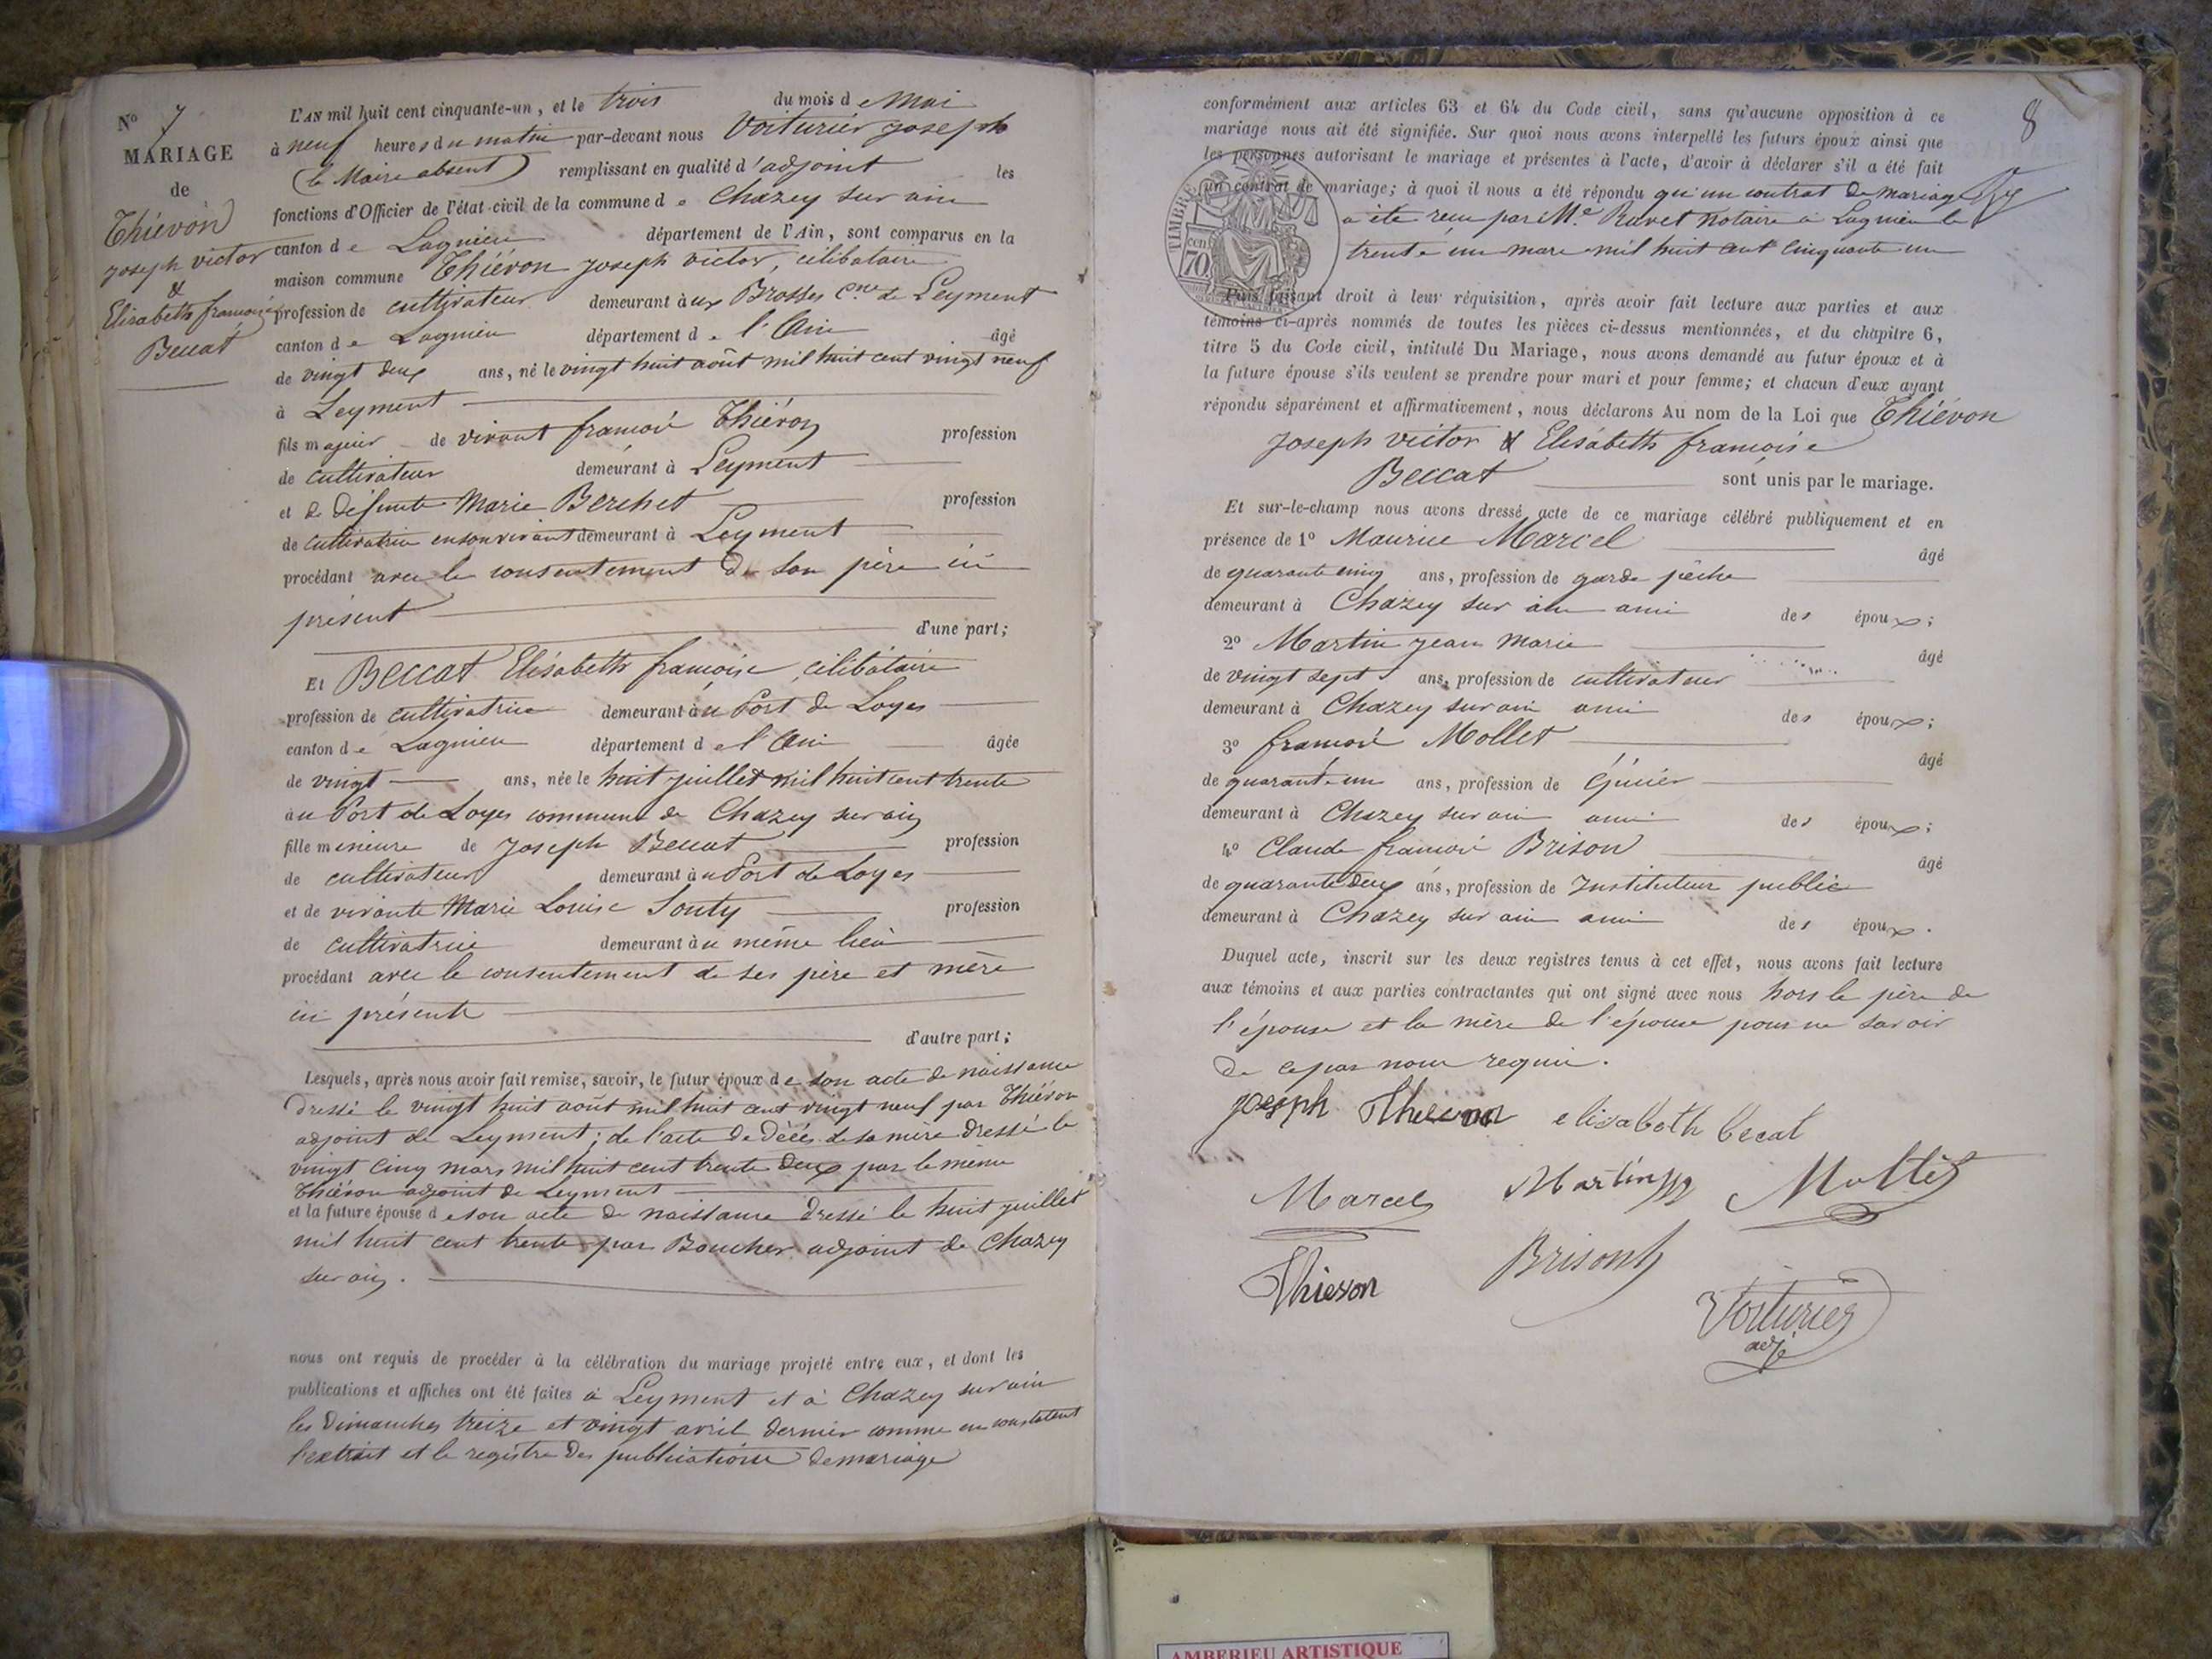 N° 7
MARIAGE
de
Thiévon
joseph victor
&
Elisabeth françoise
Beccat
L'AN mil huit cent cinquante-un, et le trois du mois de Mai
à neuf heures du matin par-devant nous Voiturier joseph
(le Maire absent) remplissant en qualité d'adjoint les
fonctions d'Officier de l'état-civil de la commune de Chazey sur ain
canton de Lagnieu département de l'Ain, sont comparus en la
maison commune Thiévon joseph victor, célibataire
profession de cultivateur demeurant aux Brosses Cne de Leyment
canton de Lagnieu département de l'Ain âgé
de vingt deux ans, né le vingt huit août mil huit cent vingt neuf
à Leyment
fils majeur de vivant françois Thiévon profession
de cultivateur demeurant à Leyment
et de défunte Marie Berchet profession
de cultivatrice en son vivant demeurant à Leyment
procédant avec le consentement de son père ici
présent
d'une part;
Et Beccat Elisabeth françoise, célibataire
profession de cultivatrice demeurant au Port de Loyes
canton de Lagnieu département de l'Ain âgée
de vingt ans, née le huit juillet mil huit cent trente
au Port de Loyes commune de Chazey sur ain
fille mineure de joseph Beccat profession
de cultivateur demeurant au Port de Loyes
et de vivante Marie Louise Jonty profession
de cultivatrice demeurant au même lieu
procédant avec le consentement de ses père et mère
ici présents
d'autre part;
Lesquels, après nous avoir fait remise, savoir, le futur époux de son acte de naissance
dressé le vingt huit août mil huit cent vingt neuf par Thiévon
adjoint de Leyment; de l'acte de décès de sa mère dressé le
vingt cinq mars mil huit cent trente deux par le même
Thiévon adjoint de Leyment
et la future épouse de son acte de naissance dressé le huit juillet
mil huit cent trente par Boucher adjoint de Chazey
sur ain.
nous ont requis de procéder à la célébration du mariage projeté entre eux, et dont les
publications et affiches ont été faites à Leyment et à Chazey sur ain
les dimanches treize et vingt avril dernier comme en constatent
l'extrait et le registre des publications de mariage
8
conformément aux articles 63 et 64 du Code civil, sans qu'aucune opposition à ce
mariage nous ait été signifiée. Sur quoi nous avons interpellé les futurs époux ainsi que
les personnes autorisant le mariage et présentes à l'acte, d'avoir à déclarer s'il a été fait
un contrat de mariage; à quoi il nous a été répondu qu'un contrat de mariage
a été reçu par Me Ravet notaire à Lagnieu le
trente un mars mil huit cent cinquante un
TIMBRE
70 cen
Puis faisant droit à leur réquisition, après avoir fait lecture aux parties et aux
témoins ci-après nommés de toutes les pièces ci-dessus mentionnées, et du chapitre 6,
titre 5 du Code civil, intitulé Du Mariage, nous avons demandé au futur époux et à
la future épouse s'ils veulent se prendre pour mari et pour femme; et chacun d'eux ayant
répondu séparément et affirmativement, nous déclarons Au nom de la Loi que Thiévon
joseph victor & Elisabeth françoise
Beccat sont unis par le mariage.
Et sur-le-champ nous avons dressé acte de ce mariage célébré publiquement et en
présence de 1° Maurice Marcel âgé
de quarante cinq ans, profession de garde pêche
demeurant à Chazey sur ain ami des époux;
2° Martin jean marie âgé
de vingt sept ans, profession de cultivateur
demeurant à Chazey sur ain ami des époux;
3° françois Mollet âgé
de quarante un ans, profession de épicier
demeurant à Chazey sur ain ami des époux;
4° Claude françois Brison âgé
de quarante deux ans, profession de Instituteur public
demeurant à Chazey sur ain ami des époux.
Duquel acte, inscrit sur les deux registres tenus à cet effet, nous avons fait lecture
aux témoins et aux parties contractantes qui ont signé avec nous hors le père de
l'épouse et la mère de l'épouse pour ne savoir
de ce par nous requis.
joseph Thievon elisabeth becat
Marcel Martin Mollet
Thievon Brison Voiturier
adj
AMBERIEU ARTISTIQUE